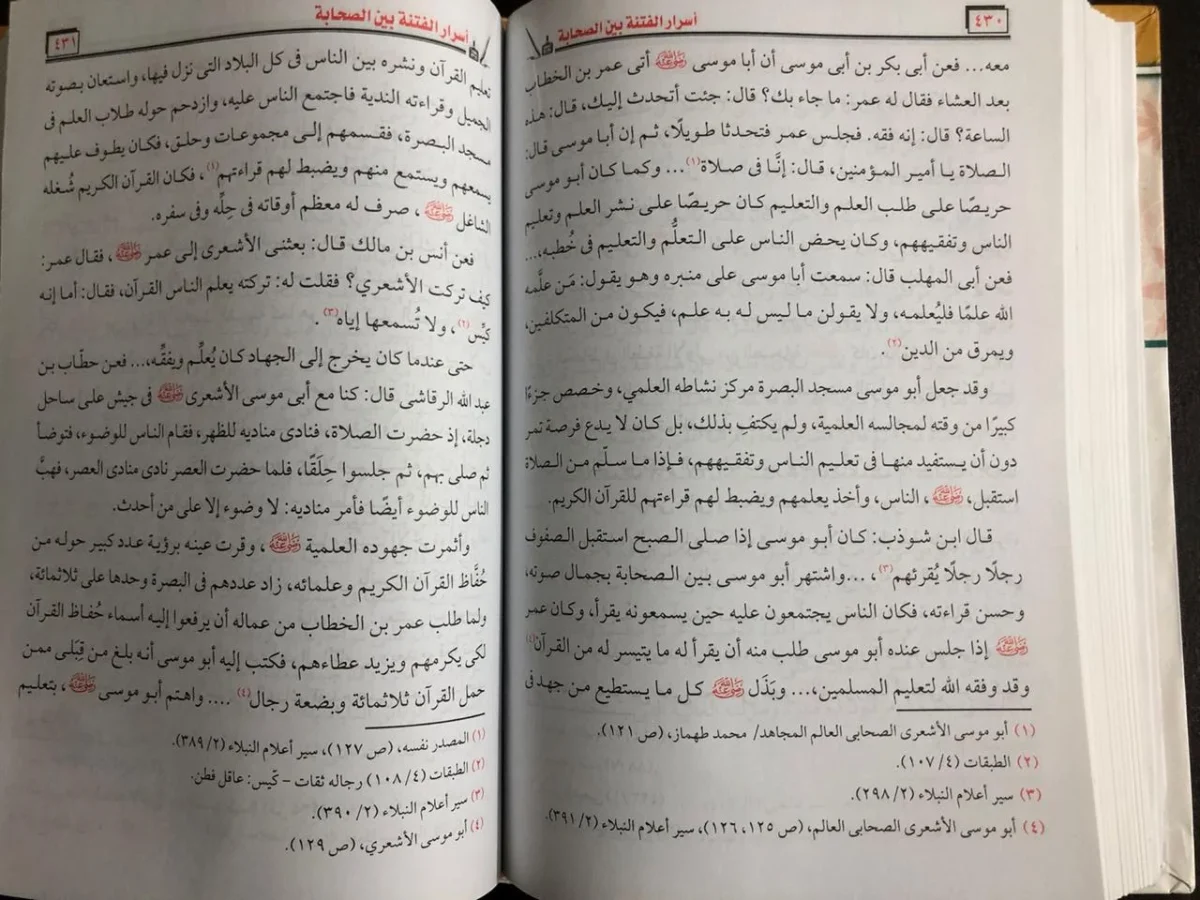 ٤٣٠
أسرار الفتنة بين الصحابة
معه... فعن أبى بكر بن بى موسى أن أبا موسى ﵁ أتى عمر بن الخطاب
بعد العشاء فقال له عمر: ما جاء بك؟ قال: جئت أتحدث إليك، قال: هذه
الساعة؟ قال: إنه فقه. فجلس عمر فتحدثا طويلًا، ثم إن أبا موسى قال:
الصلاة يا أمير المؤمنين، قال: إنَّا فى صلاة(١)... وكما كان أبو موسى
حريصًا على طلب العلم والتعليم كان حريصًا على نشر العلم وتعليم
الناس وتفقيههم، وكان يحض الناس على التعلُّم والتعليم فى خُطبه،...
فعن أبى المهلب قال: سمعت أبا موسى على منبره وهو يقول: مَن علَّمه
الله علمًا فليُعلمه، ولا يقولن ما ليس له به علم، فيكون من المتكلفين،
ويمرق من الدين(٢).
وقد جعل أبو موسى مسجد البصرة مركز نشاطه العلمي، وخصص جزءًا
كبيرًا من وقته لمجالسه العلمية، ولم يكتفِ بذلك، بل كان لا يدع فرصة تمر
دون أن يستفيد منها فى تعليم الناس وتفقيههم، فإذا ما سلّم من الصلاة
استقبل، ﵁، الناس، وأخذ يعلمهم ويضبط لهم قراءتهم للقرآن الكريم.
قال ابن شوذب: كان أبو موسى إذا صلى الصبح استقبل الصفوف
رجلًا رجلًا يُقرئهم(٣)، ...واشتهر أبو موسى بين الصحابة بجمال صوته،
وحسن قراءته، فكان الناس يجتمعون عليه حين يسمعونه يقرأ، وكان عمر
﵁ إذا جلس عنده أبو موسى طلب منه أن يقرأ له ما يتيسر له من القرآن(٤)
وقد وفقه الله لتعليم المسلمين،... وبَذَل ﵁ كل ما يستطيع من جهد فى
(١) أبو موسى الأشعرى الصحابى العالم المجاهد/ محمد طهماز، (ص ١٢١).
(٢) الطبقات (٤/ ١٠٧).
(٣) سير أعلام النبلاء (٢/ ٢٩٨).
(٤) أبو موسى الأشعرى الصحابى العالم، (ص ١٢٥، ١٢٦)، سير أعلام النبلاء (٢/ ٣٩١).
أسرار الفتنة بين الصحابة
٤٣١
تعليم القرآن ونشره بين الناس فى كل البلاد التى نزل فيها، واستعان بصوته
الجميل وقراءته الندية فاجتمع الناس عليه، وازدحم حوله طلاب العلم فى
مسجد البصرة، فقسمهم إلى مجموعات وحلق، فكان يطوف عليهم
يسمعهم ويستمع منهم ويضبط لهم قراءتهم(١)، فكان القرآن الكريم شُغله
الشاغل ﵁، صرف له معظم أوقاته فى حِلِّه وفى سفره.
فعن أنس بن مالك قال: بعثنى الأشعرى إلى عمر ﵁، فقال عمر:
كيف تركت الأشعري؟ فقلت له: تركته يعلم الناس القرآن، فقال: أما إنه
كيِّس(٢)، ولا تُسمعها إياه(٣).
حتى عندما كان يخرج إلى الجهاد كان يُعلِّم ويفقِّه،... فعن حطّاب بن
عبد الله الرقاشى قال: كنا مع أبى موسى الأشعرى ﵁ فى جيش على ساحل
دجلة، إذ حضرت الصلاة، فنادى مناديه للظهر، فقام الناس للوضوء، فتوضأ
ثم صلى بهم، ثم جلسوا حِلَقًا، فلما حضرت العصر نادى منادى العصر، فهبَّ
الناس للوضوء أيضًا فأمر مناديه: لا وضوء إلا على من أحدث.
وأثمرت جهوده العلمية ﵁، وقرت عينه برؤية عدد كبير حوله من
حُفَّاظ القرآن الكريم وعلمائه، زاد عددهم فى البصرة وحدها على ثلاثمائة،
ولما طلب عمر بن الخطاب من عماله أن يرفعوا إليه أسماء حُفاظ القرآن
لكى يكرمهم ويزيد عطاءهم، فكتب إليه أبو موسى أنه بلغ من قِبَلى ممن
حمل القرآن ثلاثمائة وبضعة رجال(٤) .... واهتم أبو موسى ﵁، بتعليم
(١) المصدر نفسه، (ص ١٢٧)، سير أعلام النبلاء (٢/ ٣٨٩).
(٢) الطبقات (٤/ ١٠٨) رجاله ثقات - كّيس: عاقل فطن.
(٣) سير أعلام النبلاء (٢/ ٣٩٠).
(٤) أبو موسى الأشعري، (ص ١٢٩).